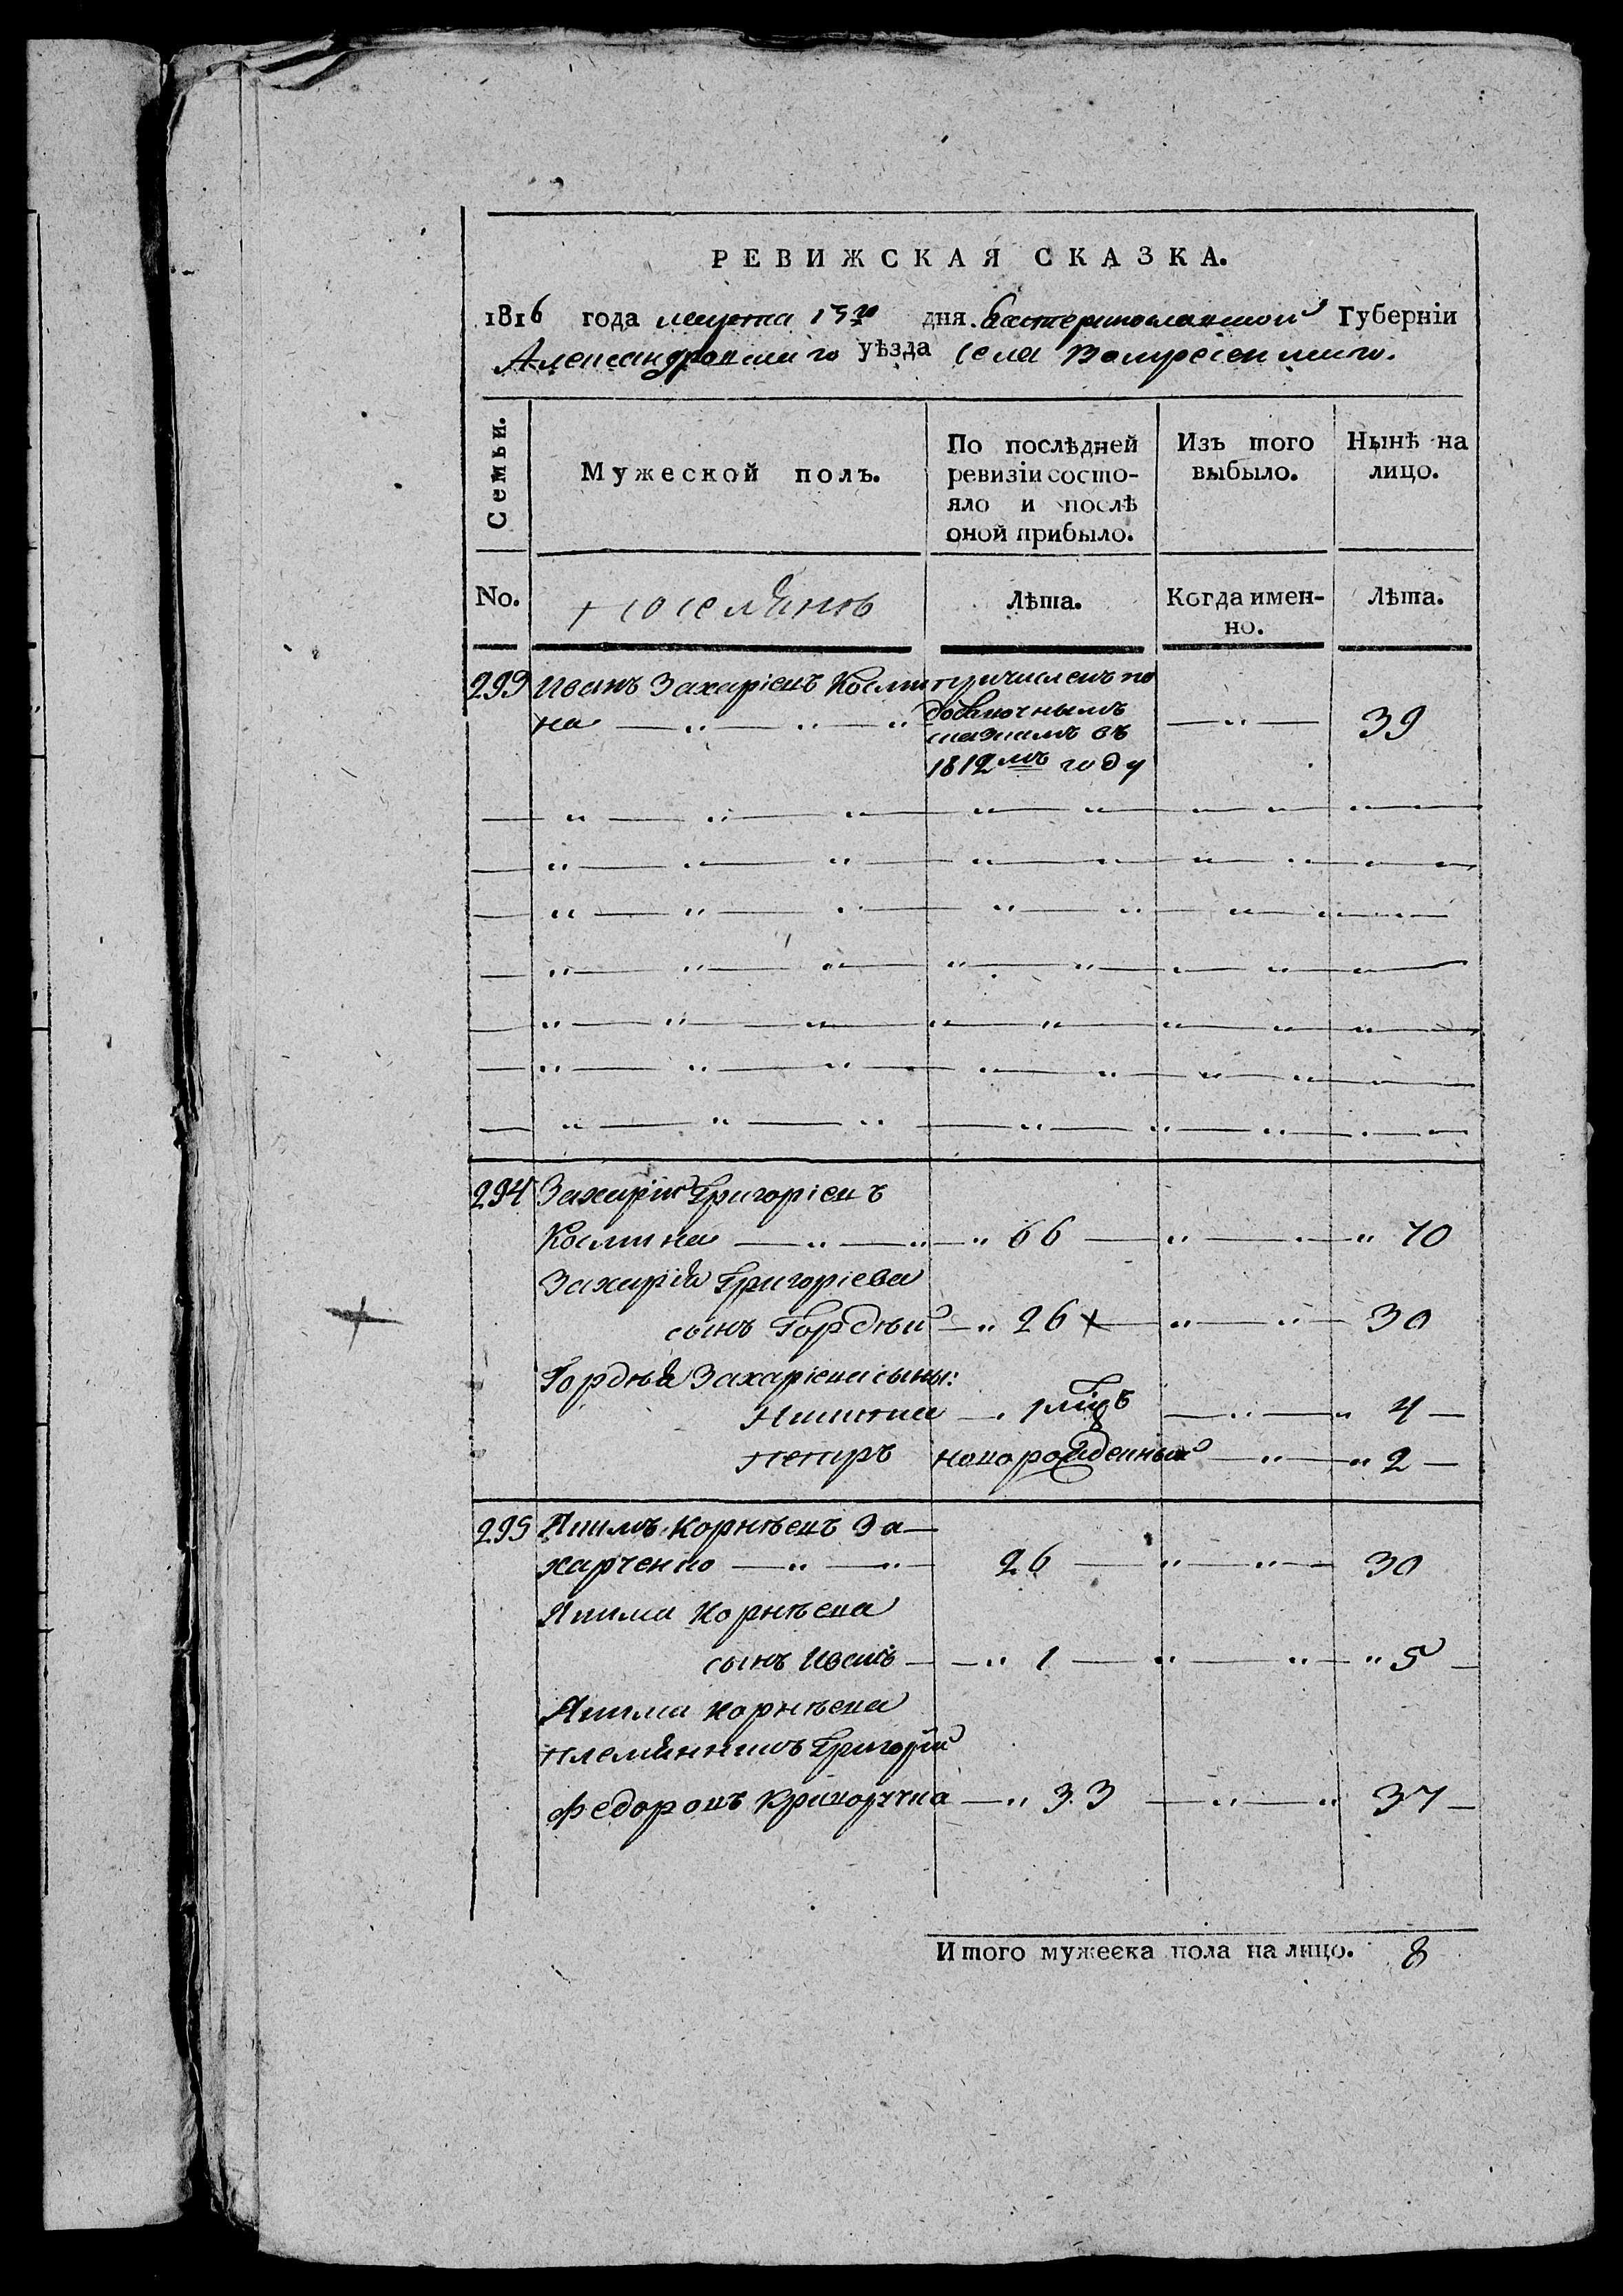 РЕВИЖСКАЯ СКАЗКА.
1816 года марта 15го дня Екатеринославской Губерніи
Александровскаго уѣзда села Воскресенскаго.
Семьи.
Мужеской полъ.
По послѣдней ревизіи состо-
яло и послѣ оной прибыло.
Изъ того выбыло.
Нынѣ на лицо.
No.
поселянъ
Лѣта.
Когда имен-
но.
Лѣта.
293 Иванъ Захаріевъ Косми причисленъ по
на — „ — „ — „ добавочнымъ — „ — 39
сказкамъ въ
1812мъ году
294 Захарій Григоріевъ
Космина — „ — „ — „ 66 — „ — „ 70
Захарія Григоріева
сынъ Гордѣй — „ 26 х — „ — „ — 30
Гордѣя Захаріева сыны:
Никита — „ 1 — „ — „ 4 —
Петръ новорожденный — „ — „ 2 —
295 Якимъ Корнѣевъ За-
харченко — „ — „ — 26 — „ — „ — 30
Якима Корнѣева
сынъ Иванъ — „ 1 — „ — „ — „ 5 —
Якима Корнѣева
племянникъ Григорій
Федоровъ — „ 33 — „ — „ 37 —
Итого мужеска пола на лицо. 8